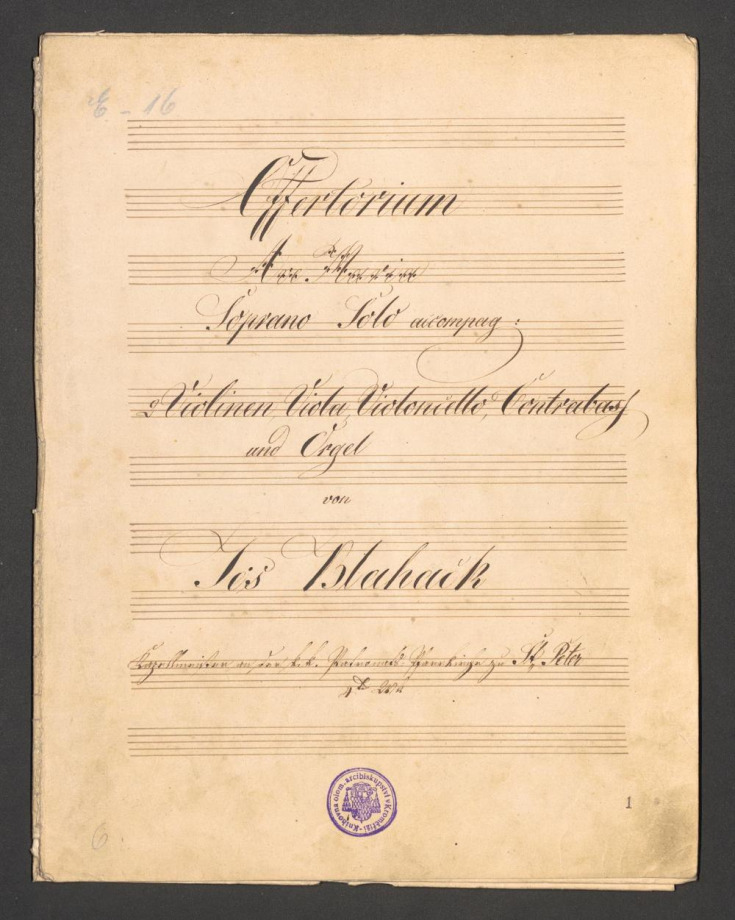 E-16
Offertorium
Ave Maria
Soprano Solo accompag:
2 Violinen, Viola, Violoncello, Contrabass
und Orgel
von
Jos Blahack
Kapellmeister an der k.k. Patronats-Pfarrkirche zu St. Peter
Knihovna olom. arcibiskupství v Kroměříži
1
6